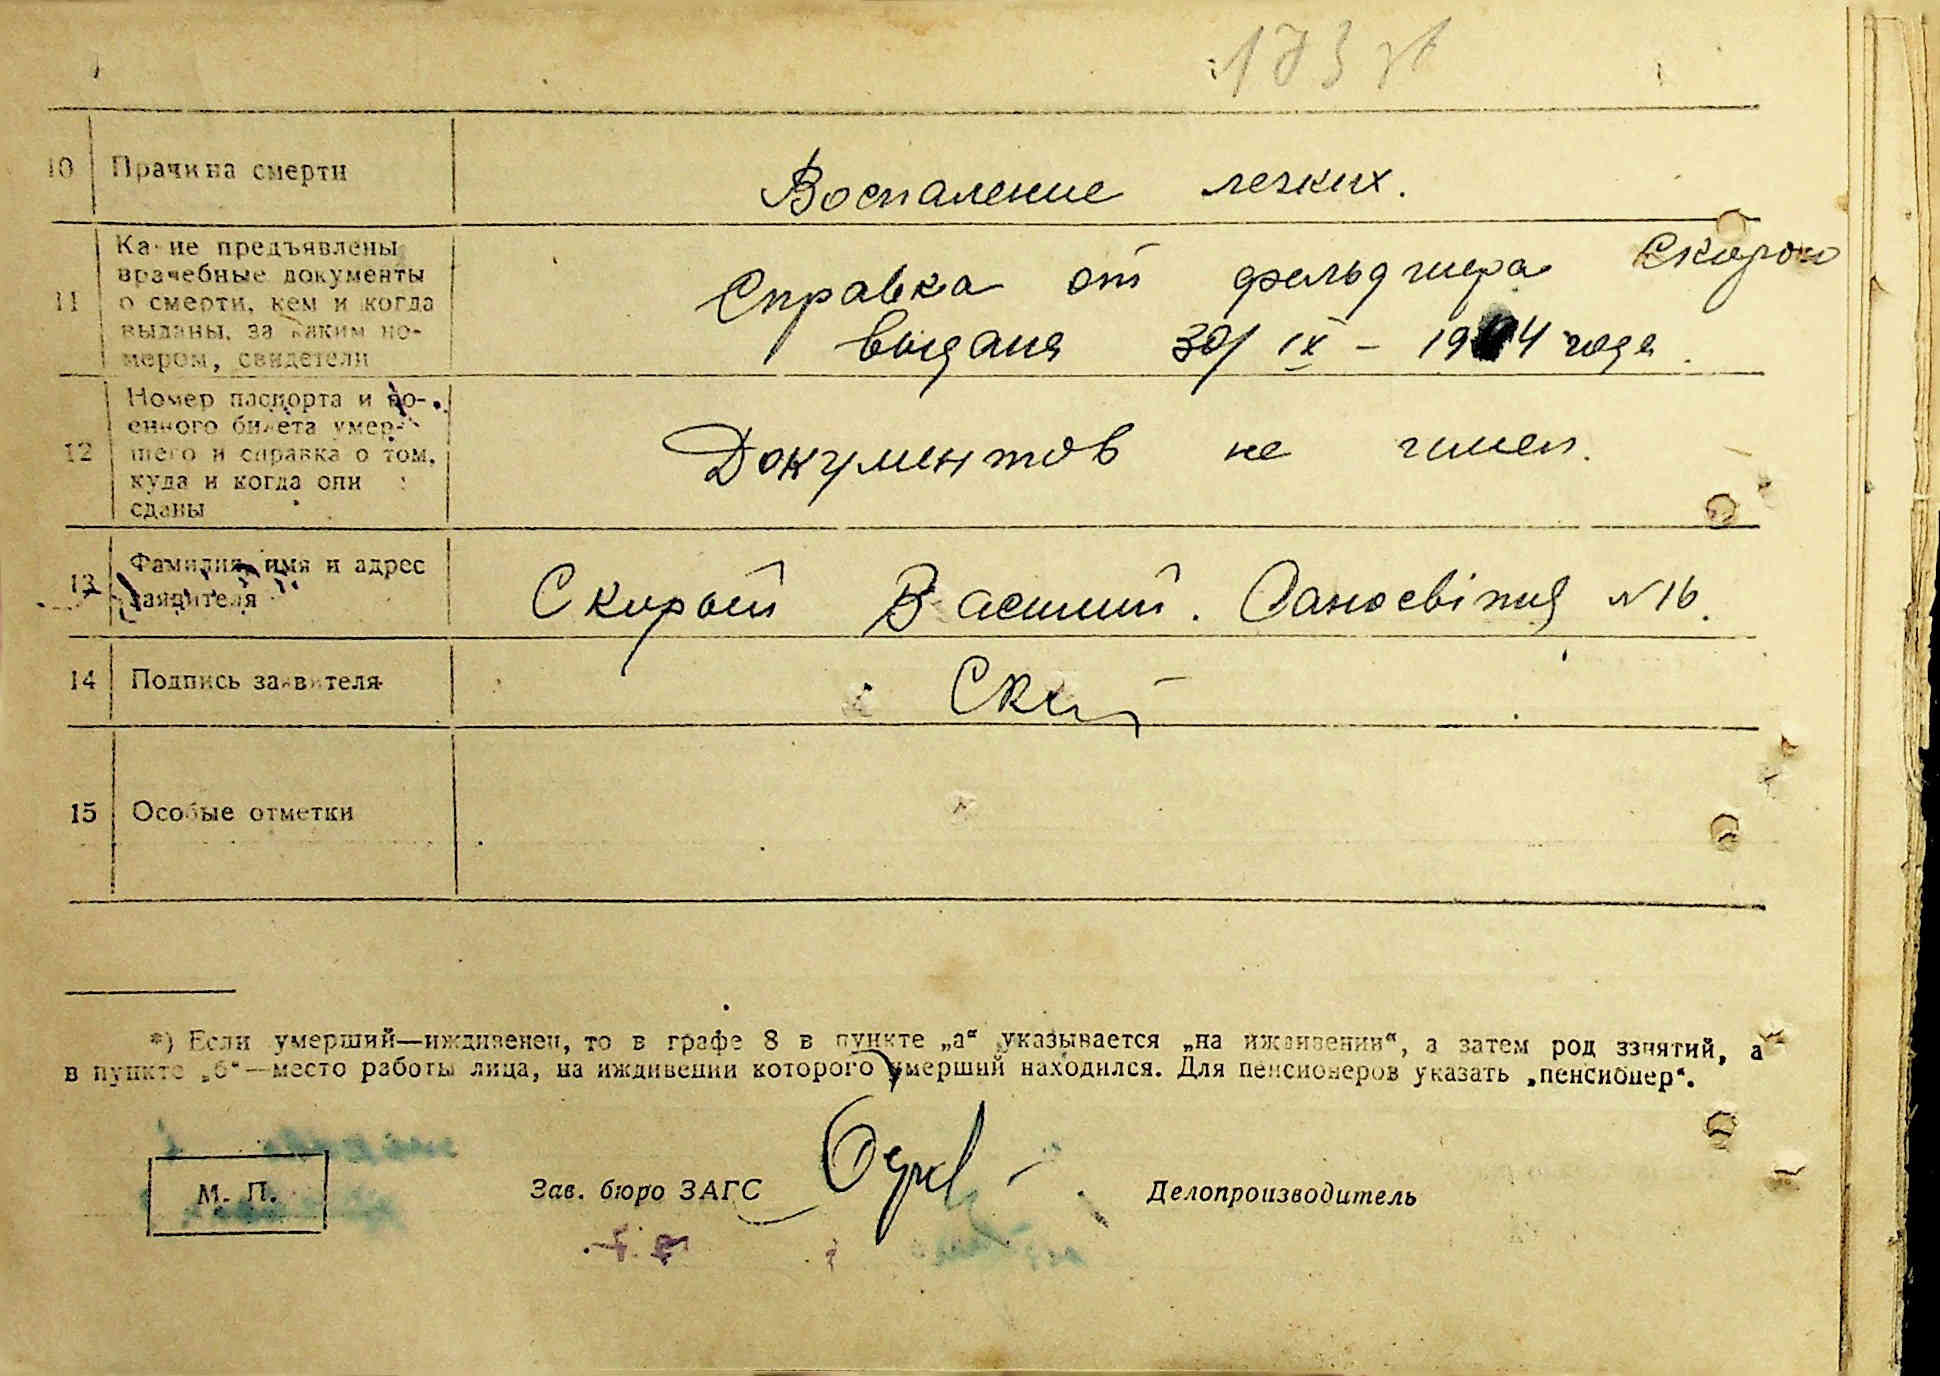 173 зв
10 Причина смерти
Воспаление легких.
11 Какие предъявлены
врачебные документы
о смерти, кем и когда
выданы, за каким но-
мером, свидетели
Справка от фельдшера Скорого
выдана 30/IX - 1944 года.
12 Номер паспорта и во-
енного билета умер-
шего и справка о том,
куда и когда они
сданы
Документов не имел.
13 Фамилия, имя и адрес
заявителя
Скорый Василий. №16.
14 Подпись заявителя
15 Особые отметки
*) Если умерший—иждивенец, то в графе 8 в пункте „а“ указывается „на иждивении“, а затем род занятий, а
в пункте „б“—место работы лица, на иждивении которого умерший находился. Для пенсионеров указать „пенсионер“.
М. П.
Зав. бюро ЗАГС
Делопроизводитель